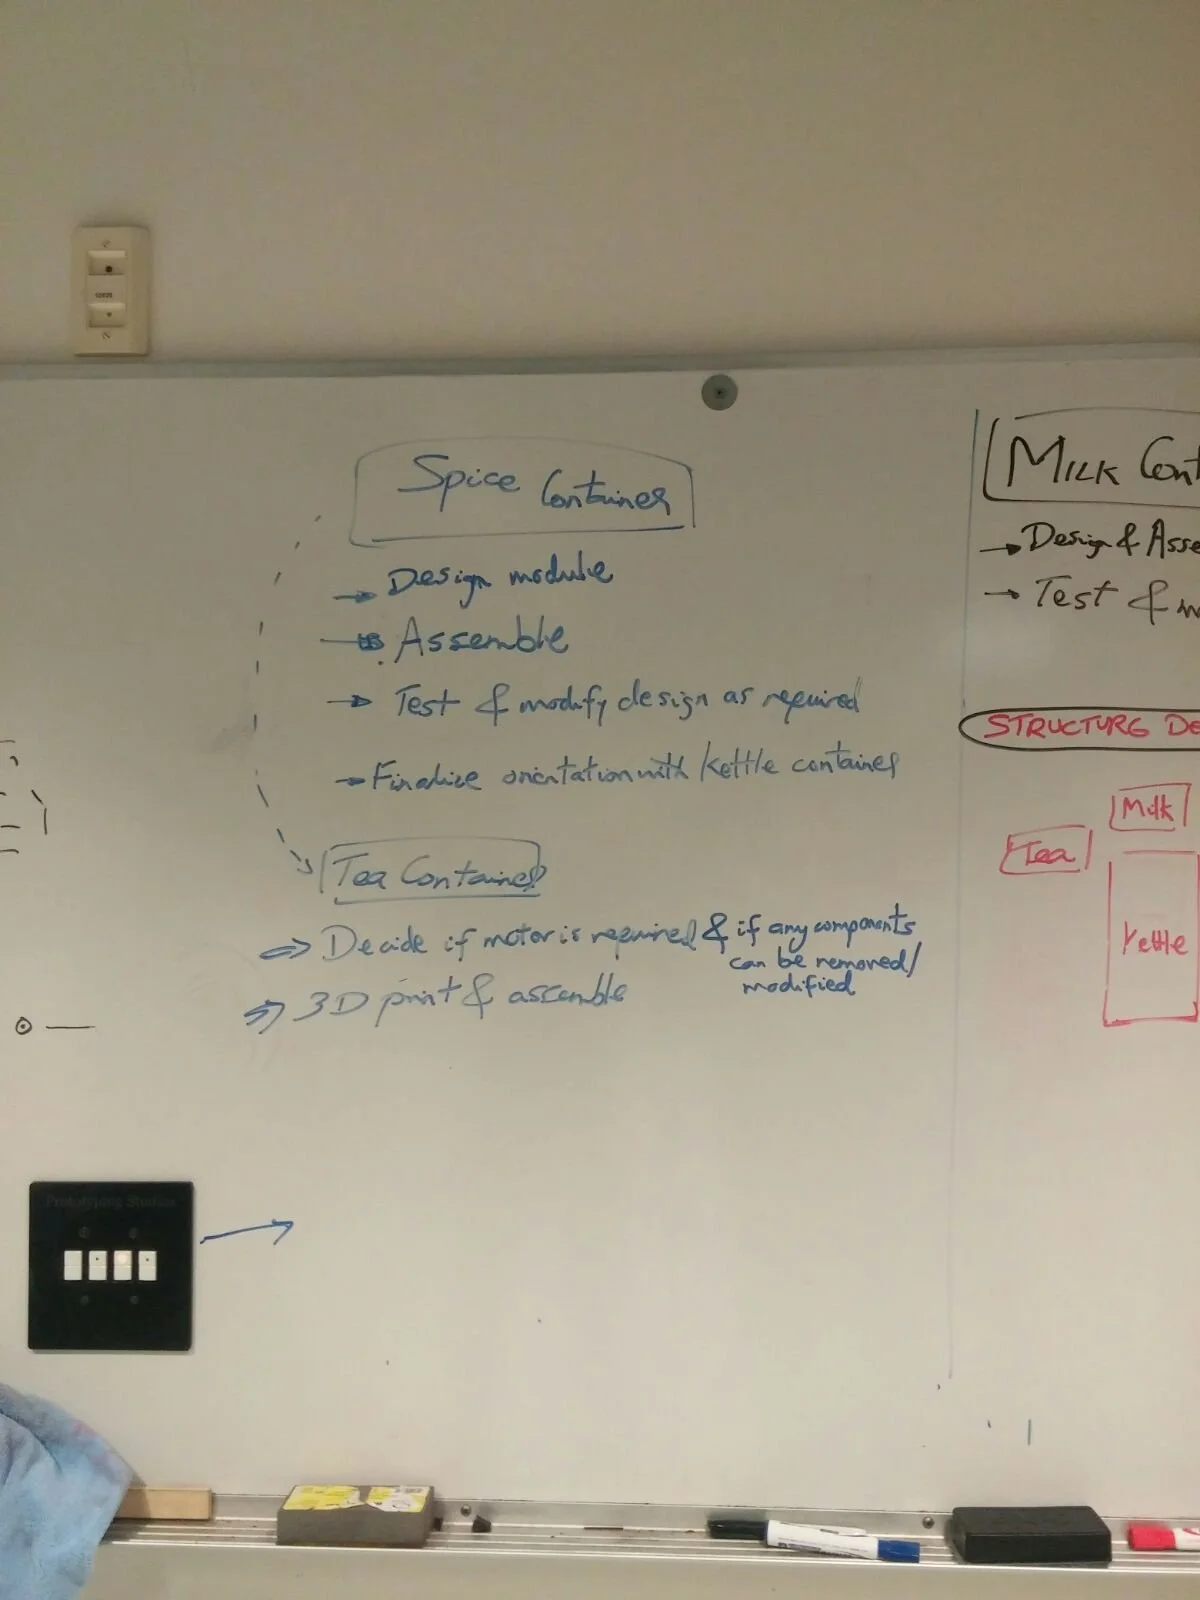 Spice Container
→ Design module
→ Assemble
→ Test & modify design as required
→ Finalize orientation with kettle container
Tea Container
⇒ Decide if motor is required & if any components
can be removed/
modified
⇒ 3D print & assemble
MILK Cont
→ Design & Asse
→ Test & m
STRUCTURE DE
Milk
Tea
Kettle
Prototyping Studios